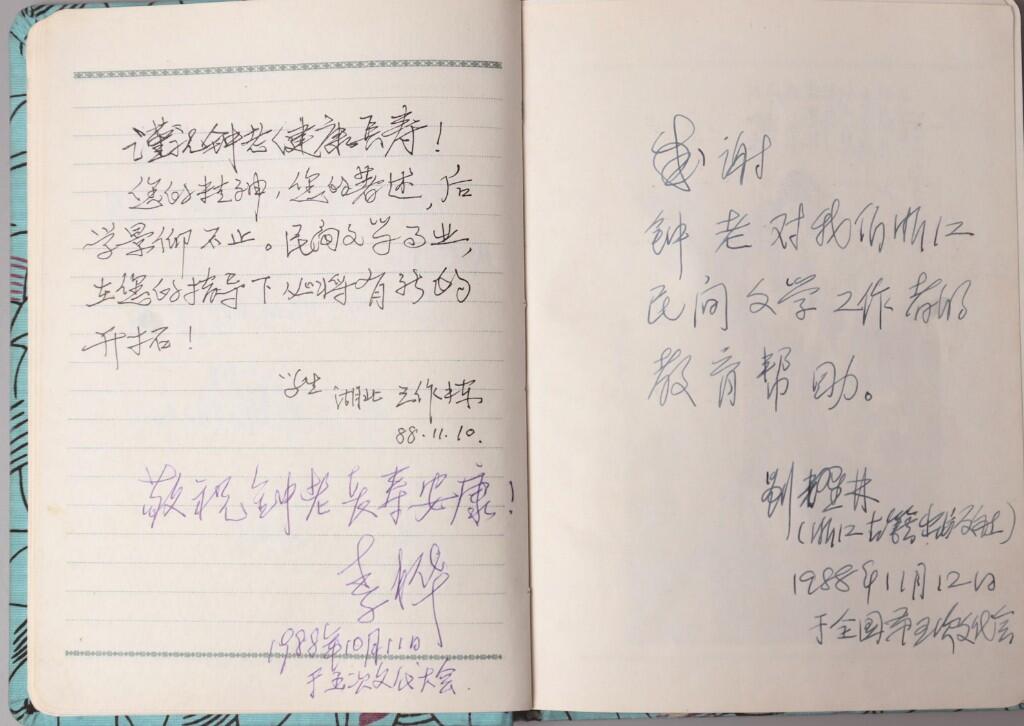 谨祝钟老健康长寿！
您的精神，您的著述，后
学景仰不止。民间文学事业，
在您的指导下必将有新的
开拓！
学生 湖北 王作栋
88.11.10.
敬祝钟老长寿安康！
李桦
1988年10月11日
于五次文代大会.
感谢
钟老对我们浙江
民间文学工作者的
教育帮助。
(浙江古籍出版社)
1988年11月12日
于全国第五次文代会